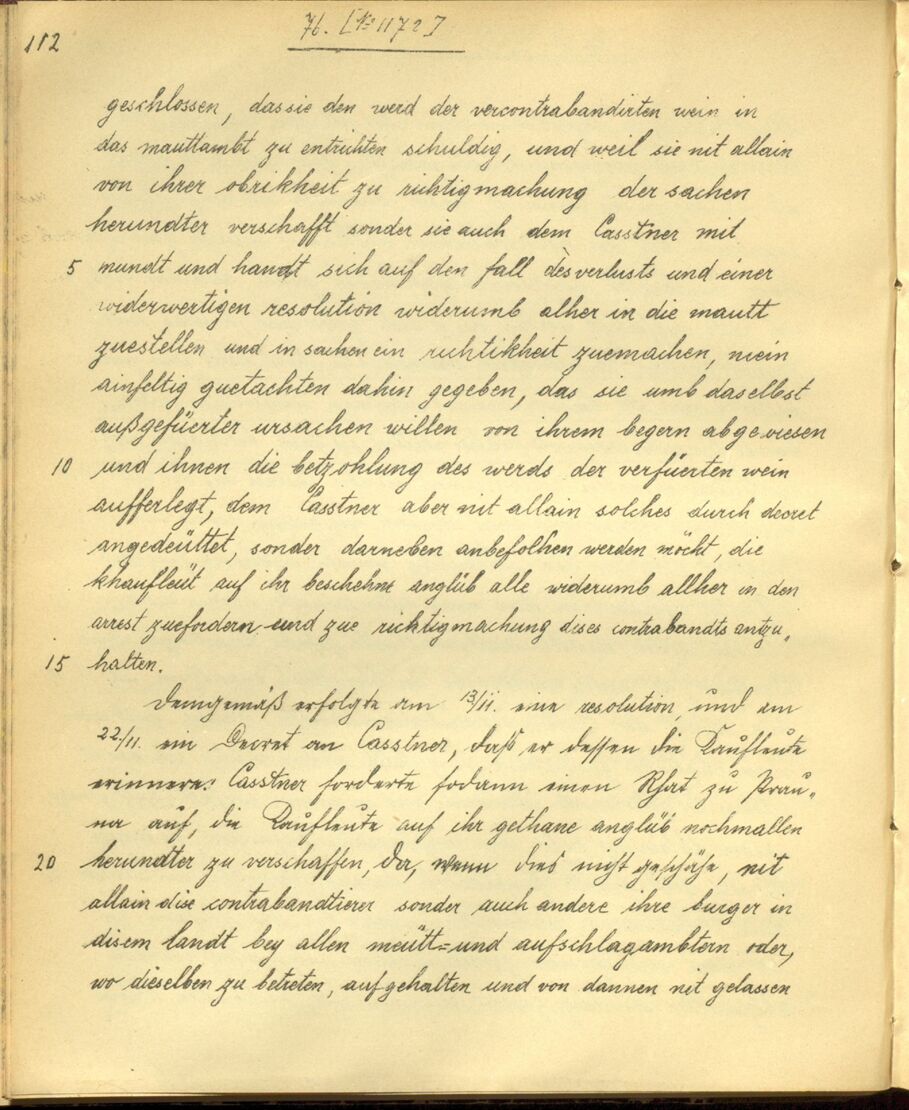 112
76. [№ 1172]
geschlossen, dassie den werd der vercontrabandirten wein in
das mauttambt zu entrichten schuldig, und weil sie nit allain
von ihrer obrikheit zu richtigmachung der sachen
herundter verschafft sonder sie auch dem Casstner mit
5 mundt und handt sich auf den fall des verlusts und einer
widerwertigen resolution widerumb alher in die mautt
zuestellen und in sachen ein richtikheit zuemachen, mein
ainfeltig guetachten dahin gegeben, das sie umb daselbst
außgefüerter ursachen willen von ihrem begern abgewiesen
10 und ihnen die betzohlung des werds der verfüerten wein
aufferlegt, dem Casstner aber nit allain solches durch decret
angedeüttet, sonder darneben anbefolhen werden möcht, die
khaufleüt auf ihr beschehne anglüb alle widerumb allher in den
arrest zuefordern und zue richtigmachung dises contrabandts antzu„
15 halten.
Demgemäß erfolgte am 13/11. eine resolution, und am
22./11. ein Decret an Casstner, daß er dessen die Kaufleute
erinnere. Casstner forderte sodann einen Rhat zu Prau„
na auf, die Kaufleute auf ihr gethane anglüb nochmallen
20 herundter zu verschaffen, da, wenn dies nicht geschähe, nit
allain dise contrabandtierer sonder auch andere ihre burger in
disem landt bey allen meütt= und aufschlagambtern oder,
wo dieselben zu betreten, aufgehalten und von dannen nit gelassen